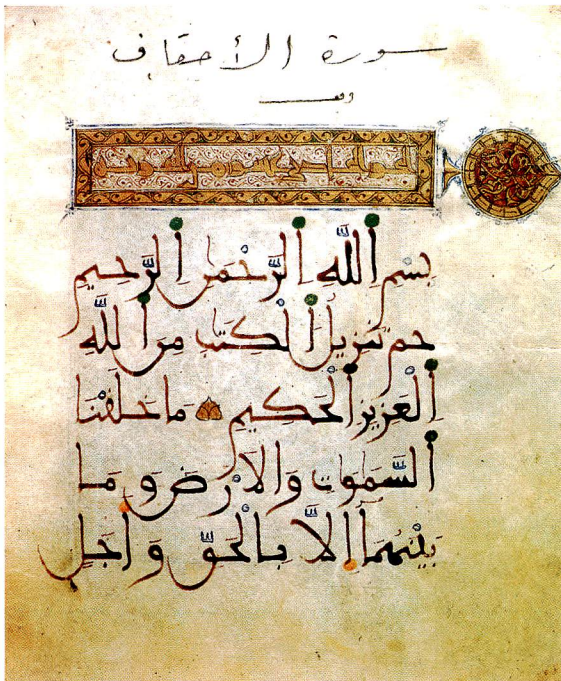 سورة الأحقاف
وقف
بِسْمِ اللَّهِ الرَّحْمَٰنِ الرَّحِيمِ
حم تَنزِيلُ الْكِتَٰبِ مِنَ اللَّهِ
الْعَزِيزِ الْحَكِيمِ مَا خَلَقْنَا
السَّمَٰوَٰتِ وَالْارْضَ وَمَا
بَيْنَهُمَا إِلَّا بِالْحَقِّ وَأَجَلٍ